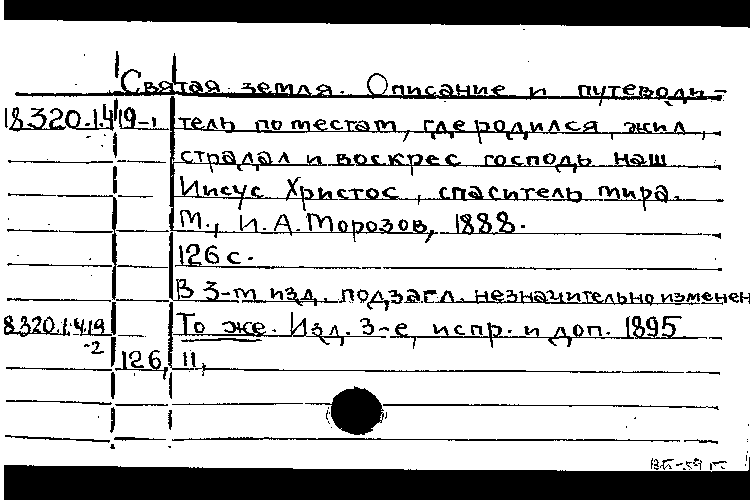 Святая земля. Описание и путеводи-
18.320.1.4.19-1 тель по местам, где родился, жил,
страдал и воскрес господь наш
Иисус Христос, спаситель мира.
М., И.А. Морозов, 1888.
126 с.
В 3-м изд. подзагл. незначительно изменен
8.320.1.4.19-2 То же. Изд. 3-е, испр. и доп. 1895
126, II,